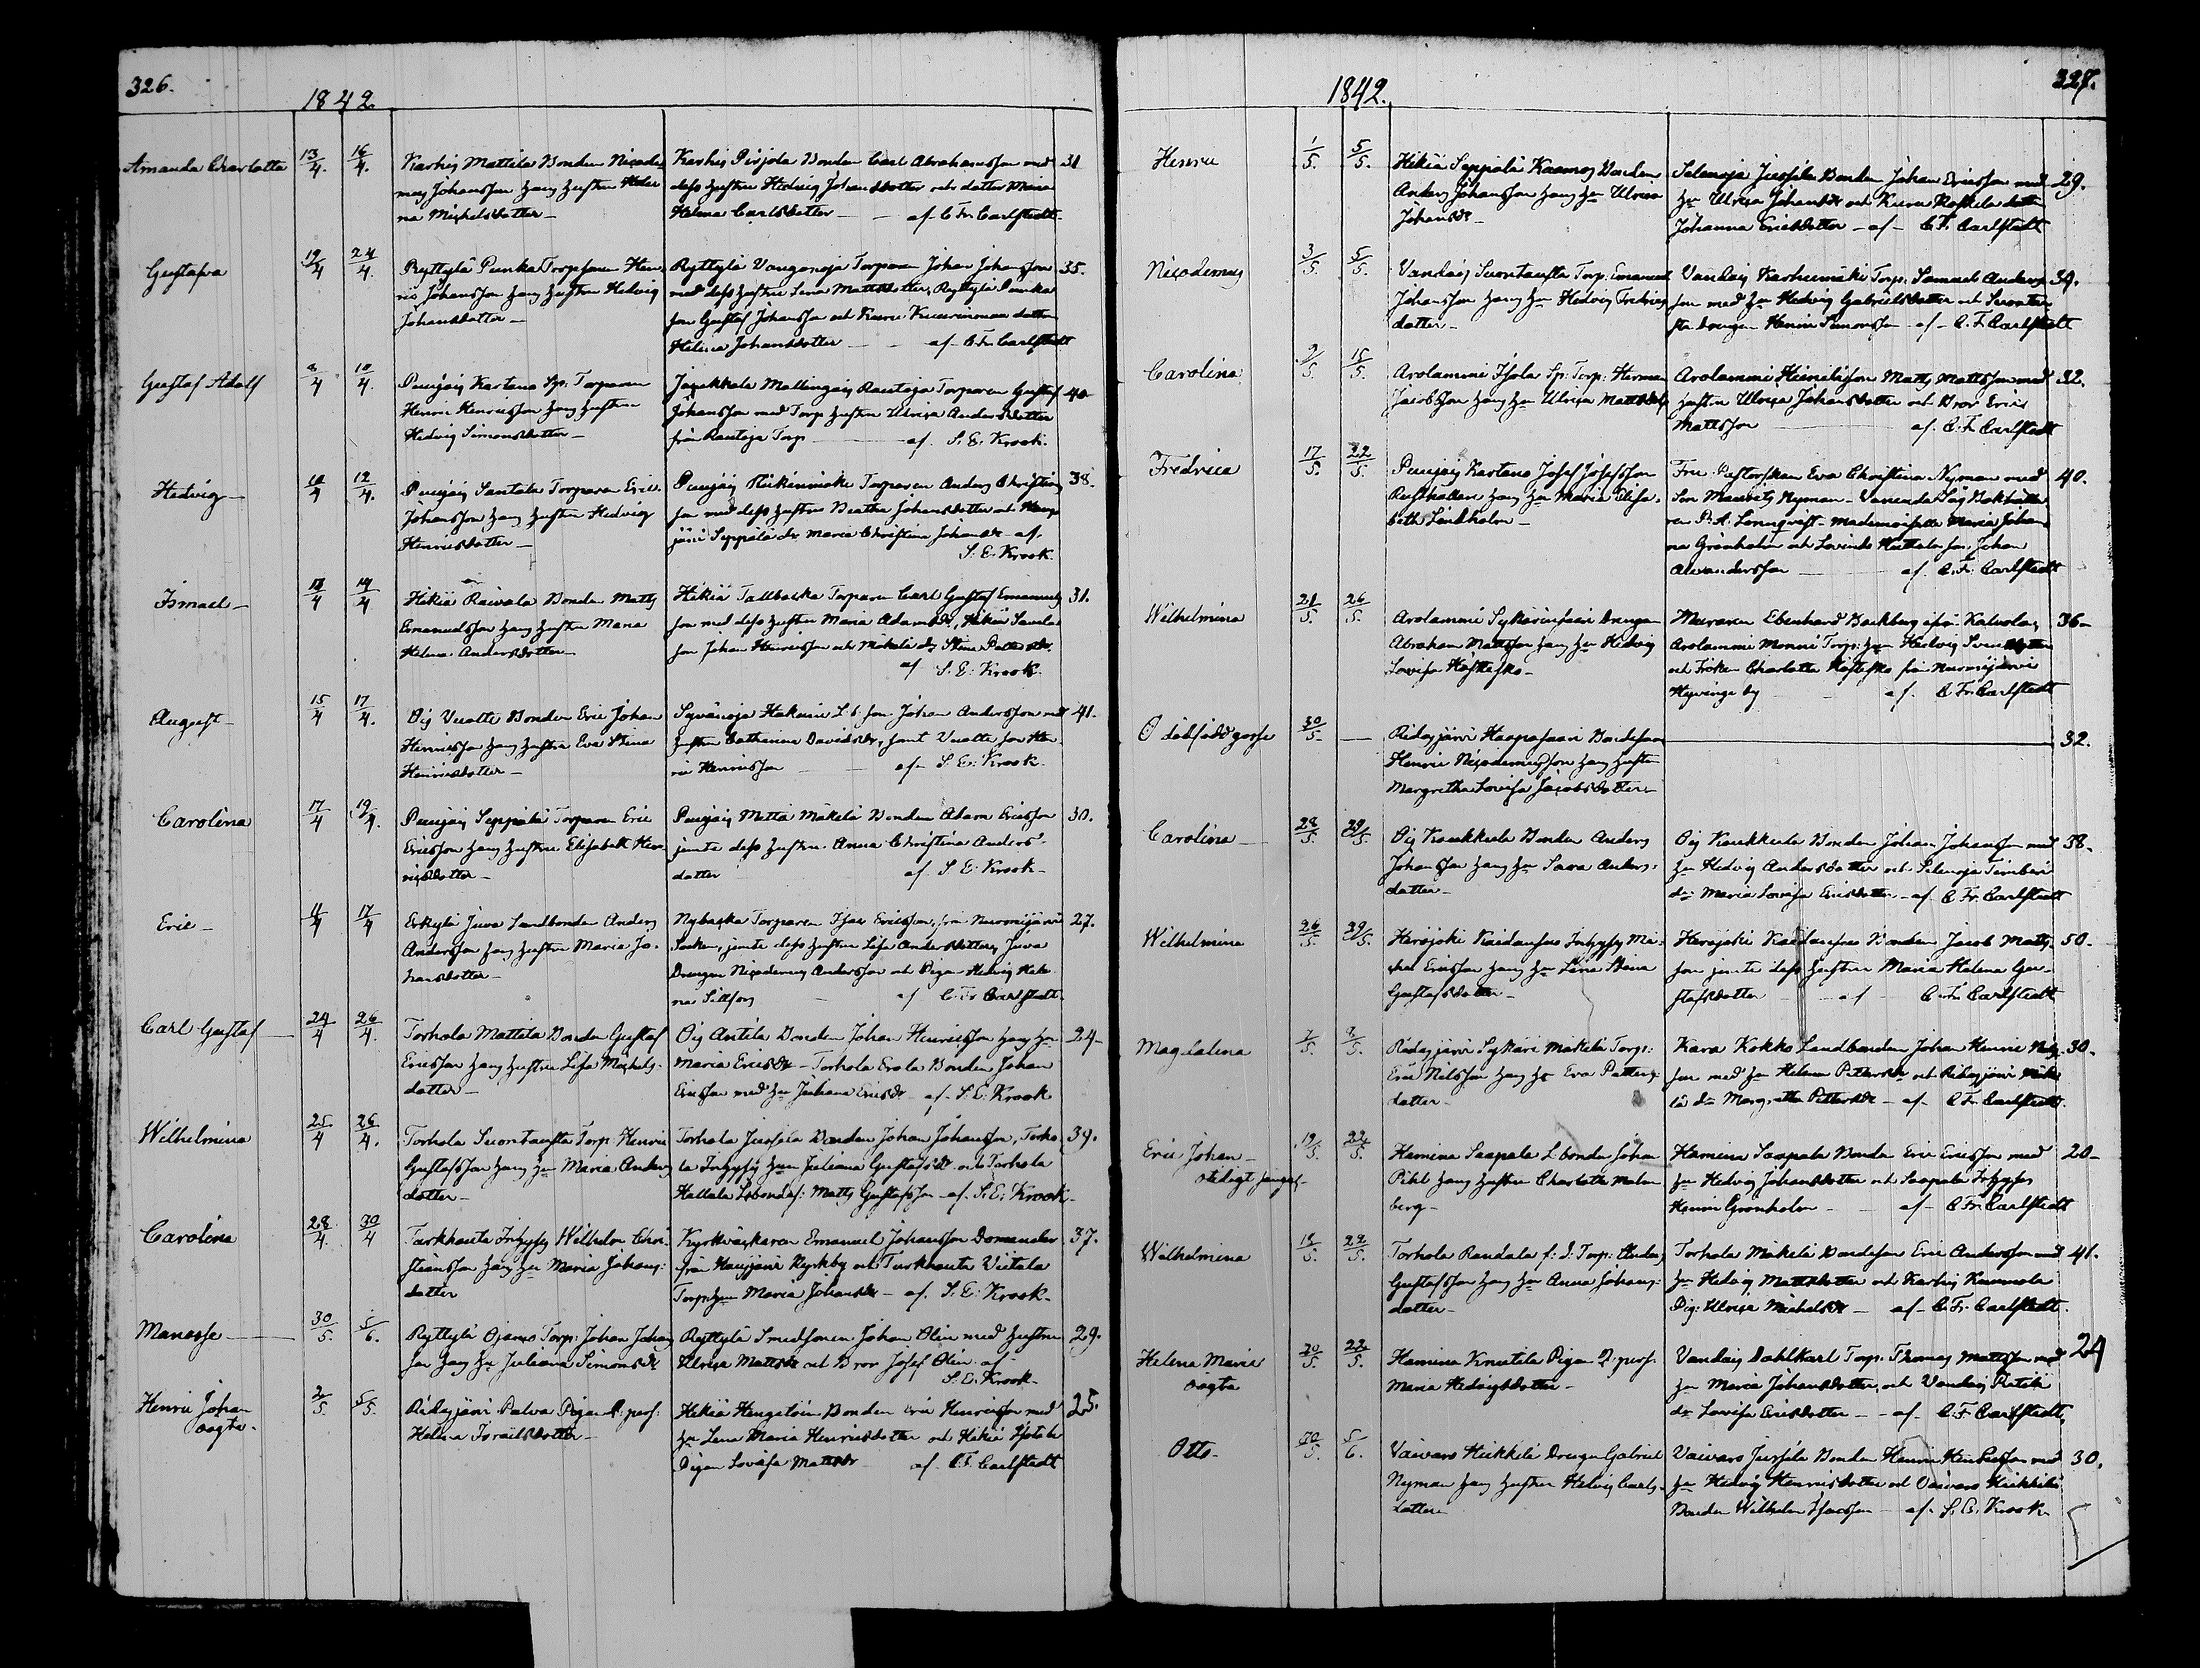 326.
1842
Amanda Charlotta 13/4. 16/4. Karhis Mattila Bonden Nicode- Karhis Pirjola Bonden Carl Abrahamsson med 31
mus Johansson hans hustru Hele- dess hustru Hedvig Johansdotter och dotter Maria
na Michelsdotter – Helena Carlsdotter – af C. Fr. Carlstedt.
Gustafva 19/4 24/4. Ryttylä Punka Torparen Hen- Ryttylä Vanganoja Torparen Johan Johansson 35.
ric Johansson hans hustru Hedvig med dess hustru Lena Mattsdotter, Ryttylä Punka
Johansdotter – son Gustaf Johansson och dotter
Helena Johansdotter – af C. Fr. Carlstedt
Gustaf Adolf 8/4 10/4. Punjais Kartano Torparen Janakkala Mallingais Rautoja Torparen Gustaf 40
Henric Henricsson hans hustru Johansson med Torp. hustru Ulrica Andersdotter
Hedvig Simonsdotter – från Rautoja Torp – af S. E. Krook.
Hedvig – 10/4 12/4. Punjais Santala Torparen Eric Punjais Torparen Anders Christians 38.
Johansson hans hustru Hedvig son med dess hustru Beatha Johansdotter och
Henricsdotter – Seppälä dr Maria Christina Johansdr af.
S. E. Krook.
Ismael – 13/4 14/4 Hikiä Raivala Bonden Matts Hikiä Tallbacka Torparen Carl Gustaf Emanuels 31.
Emanuelsson hans hustru Maria son med dess hustru Maria Adamsdr, Hikiä
Helena Andersdotter – son Johan Henricsson och Mäkelä dr Stina
af S. E. Krook.
August – 15/4 17/4. Ois Vuolte Bonden Eric Johan Syvänoja Hakuni L. b. son Johan Andersson med 41.
Henricsson hans hustru Eva Stina hustru Catharina Davidsdr, samt Vuolte son Hen-
Henricsdotter – ric Henricsson – af. S. E. Krook.
Carolina 17/4 19/4. Punjais Seppälä Torparen Eric Punjais Metta Mäkelä Bonden Adam Ericsson 30.
Ericsson hans hustru Elisabeth Hen- jemte dess hustru Anna Christina Anders-
ricsdotter – dotter af S. E. Krook –
Eric – 11/4 17/4 Erkylä Juva Landbonden Anders Nybacka Torparen Isac Ericsson, från Nurmijärvi 27.
Andersson hans hustru Maria Jo- Socken, jemte dess hustru Lisa Andersdotter, Juva
hansdotter – Drengen Nicodemus Andersson och Pigan Hedvig Hele-
na Sillfors – af C. Fr. Carlstedt.
Carl Gustaf – 24/4 26/4. Torhola Mattila Bonden Gustaf Ois Antila Bonden Johan Henricsson hans hu 24–
Ericsson hans hustru Lisa Michels- Maria Ericsdr – Torhola Erola Bonden Johan
dotter – Ericsson med hu Juliana Ericsdr af. S. E. Krook
Wilhelmina 25/4 26/4. Torhola Suontausta Torp. Henric Torhola Jussila Bonden Johan Johansson, Torho- 39.
Gustafsson hans hu Maria Anders la Inhyses hu Juliana Gustafsdr och Torhola
dotter – Hallala Matts Gustafsson – af. S. E. Krook –
Carolina 28/4. 30/4 Turkhauta Inhyses Wilhelm Chri- Kyrkväktaren Emanuel Johansson Domander 37.
stiansson hans hu Maria Johans- från Hausjärvi Kyrkby och Turkhauta Vietala
dotter Torp. hu Maria Johansdr – af. S. E. Krook –
Manasse – 30/5. 5/6. Ryttylä Ojanen Torp. Johan Johans Ryttylä Smedsonen Johan Olin med hustru 29.
son hans hu Juliana Simonsdr Ulrica Mattsdr och Bror Josef Olin af –
S. E. Krook –
Henric Johan 2/5. 5/5. Ridasjärvi Palva Pigan Q. pers. Hikiä Hongelöin Bonden Eric Henricsson med 25.
oägta. Helena Israelsdotter – hu Lena Maria Henricsdotter och Hikiä
Pigan Lovisa Mattsdr af C. F. Carlstedt
1842.
327.
Henric 1/5. 5/5. Hikiä Seppälä Kaanos Bonden Selenoja Jussila Bonden Johan Ericsson med 29.
Anders Johansson hans hu Ulrica hu Ulrica Johansdr och dotter
Johansdr – Johanna Ericsdotter – af – C. F. Carlstedt
Nicodemus 3/5. 5/5. Vandais Suontausta Torp. Emanuel Vandais Karhumäki Torp. Samuel Anders 39.
Johansson hans hu Hedvig Fredrics son med hu Hedvig Gabrielsdotter och Suontau-
dotter – sta Drengen Henric Simonsson – af – C. F. Carlstedt
Carolina 9/5. 15/5. Arolammi Isola Sp. Torp. Herman Arolammi Matts Mattsson med 32.
Jacobsson hans hu Ulrica Mattsdr hustru Ulrica Johansdotter och Bror Eric
Mattsson – af C. Fr. Carlstedt
Fredrica 17/5. 22/5. Punjais Kartano Josef Josefsson Fru Pastorskan Eva Christina Nyman med 40.
Rusthållare hans hu Maria Elisa- Son Mauritz Nyman – Bokhålla-
beth Lindholm – ren P. A. Lönnqvist – Mademoiselle Maria Johan-
na Grönholm och Johan
Alexandersson – af. C. F. Carlstedt
Wilhelmina 21/5. 26/5. Arolammi Drengen Muraren Eberhard Backberg ifrån Kalvola, 36–
Abraham Mattsson hans hu Hedvig Arolammi Monni Torp. hu Hedvig
Lovisa och Fröken Charlotta från Nurmijärvi
Hyvinge by – af C Fr. Carlstedt
O dödfödd gosse 30/5 – Ridasjärvi Haapasaari Bondeson 32.
Henric Nicodemusson hans hustru
Margretha Lovisa Jacobsdotter –
Carolina – 28/5. 29/5. Ois Kaukkula Bonden Anders Ois Kaukkula Bonden Johan Johansson med 38–
Johansson hans hu Sara Anders- hu Hedvig Andersdotter och Selenoja Timberi
dotter – dr Maria Lovisa Ericsdotter – af C Fr. Carlstedt
Wilhelmina 26/5. 29/5. Herajoki Inhyses Mi- Herajoki Bonden Jacob Matts- 50–
chel Ericsson hans hu Lena Stina son jemte dess hustru Maria Helena Gu-
Gustafsdotter – stafsdotter – af C. Fr. Carlstedt
Magdalena 7/5. 8/5. Ridasjärvi Sykäri Mäkelä Torp. Kara Kokko Landbonden Johan Henric 30–
Eric Nilsson hans hu Eva Petters- son med hu Helena Pettersdr och Ridasjärvi Mäke-
dotter – lä dr Margretha Pettersdr – af – C Fr. Carlstedt.
Eric Johan – 19/5. 22/5. Hamina Saapala L. bonden Johan Hamina Saapala Bonden Eric Ericsson med 20–
Pihl hans hustru Charlotta Malm- hu Hedvig Johansdotter och Saapala Inhyses
berg – Henric Grönholm – af – C Fr. Carlstedt
Wilhelmina 18/5. 22/5. Torhola Randala Torp. Anders Torhola Mäkelä Bondeson Eric Andersson med 41.
Gustafsson hans hu Anna Johans- hu Hedvig Mattsdotter och Karhis
dotter – Pig. Ulrica Michelsdr – af – C. Fr. Carlstedt.
Helena Maria 20/5. 22/5. Hamina Knuutila Pigan Q. pers. Vandais Dahlkarl Torp. Thomas Mattsson med 24
oägta Maria Hedvigsdotter – hu Maria Johansdotter, och Vandais
dr Lovisa Ericsdotter – af C. F. Carlstedt,
Otto – 30/5. 5/6. Vaivaro Heikkilä Drengen Gabriel Vaivaro Jussila Bonden Henric Henricsson med 30.
Nyman hans hustru Hedvig Carls- hu Hedvig Henricsdotter och Vaivaro Heikkilä
dotter Bonden Wilhelm Isacsson af. S. E. Krook